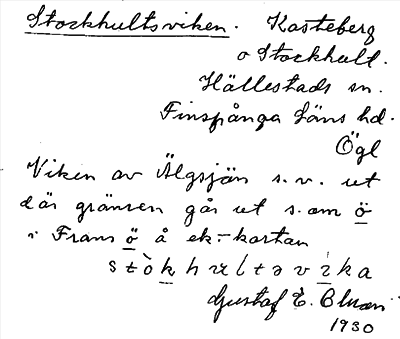 Stockhultsviken. Kasteberg
o Stockhult.
Hällestads sn.
Finspånga läns hd.
Ögl
Viken av Älgsjön s.v. ut
där gränsen går ut s.om ö
i Frans ö å ek.-kartan
Gustaf E. Bluan
1930